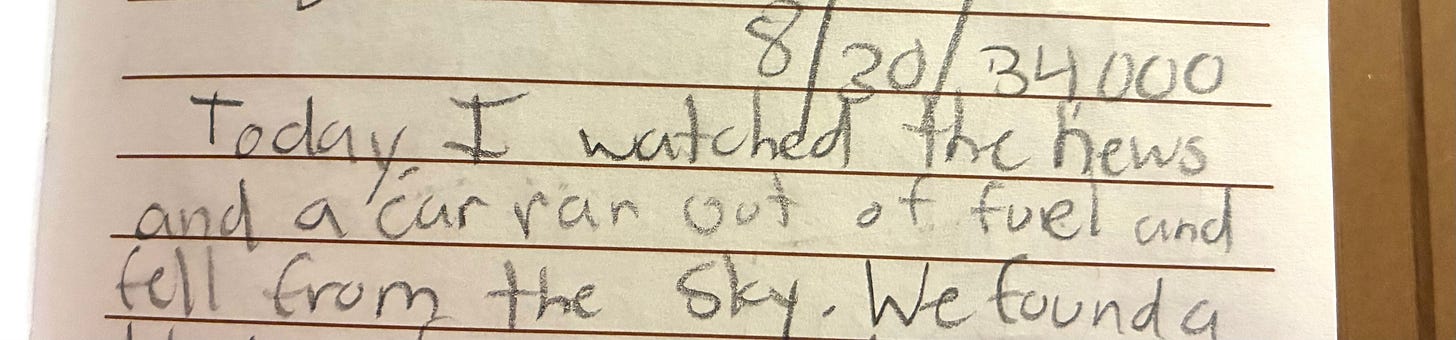 8/20/34000
Today, I watched the news
and a car ran out of fuel and
fell from the sky. We found a